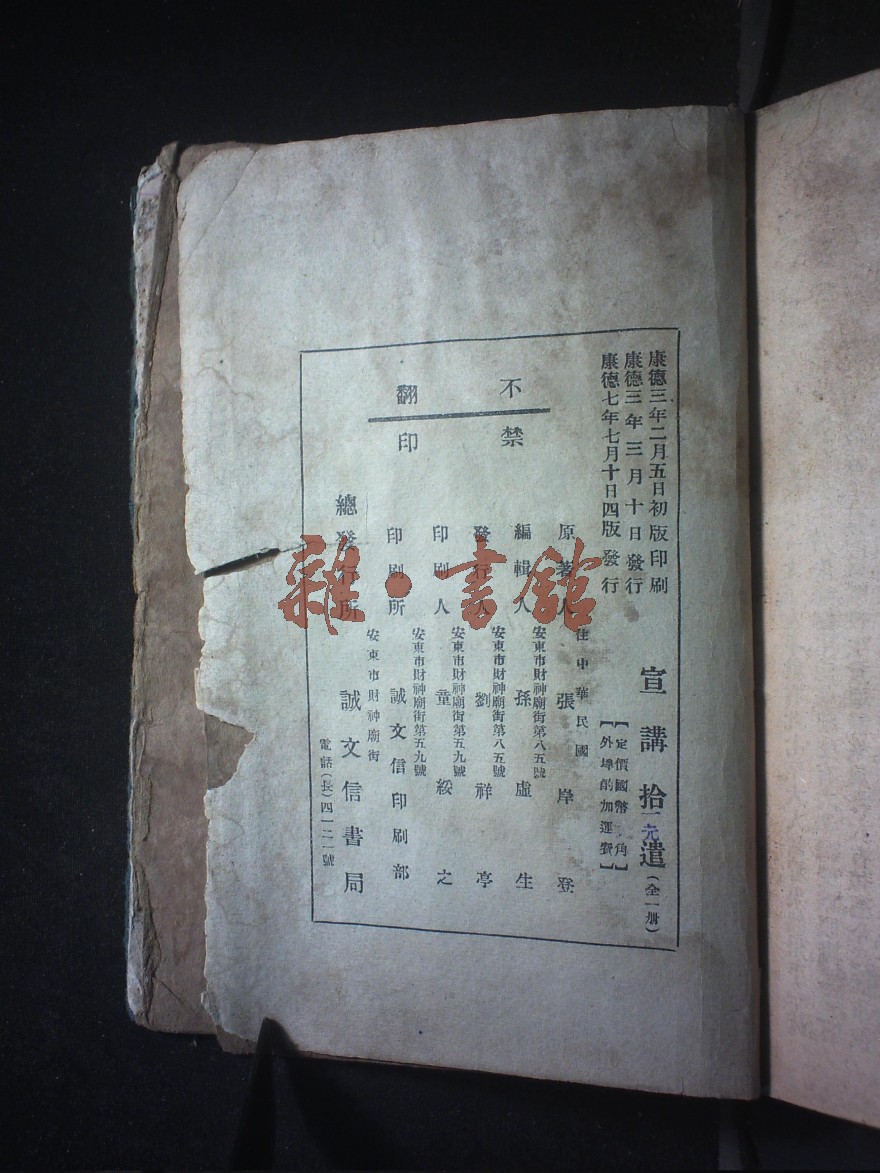 康德三年二月五日初版印刷
康德三年三月十日發行
康德七年七月十日四版發行
宣講拾遺(全一册)
【定價國幣 角】
一元
【外埠酌加運費】
不禁
翻印
住中華民國
原著人 張岸登
安東市財神廟街第八五號
編輯人 孫虛生
安東市財神廟街第八五號
發行人 劉祥亭
安東市財神廟街第五九號
印刷人 童綏之
安東市財神廟街第五九號
印刷所 誠文信印刷部
安東市財神廟街
總發行所 誠文信書局
電話(長)四一二一號
雜·書館